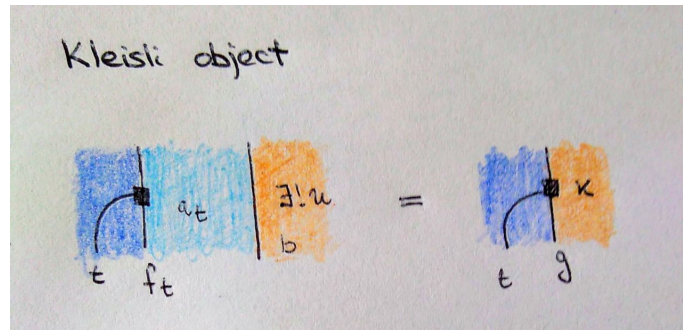 Kleisli object
a_t
∃!u
=
κ
b
t
f_t
t
g